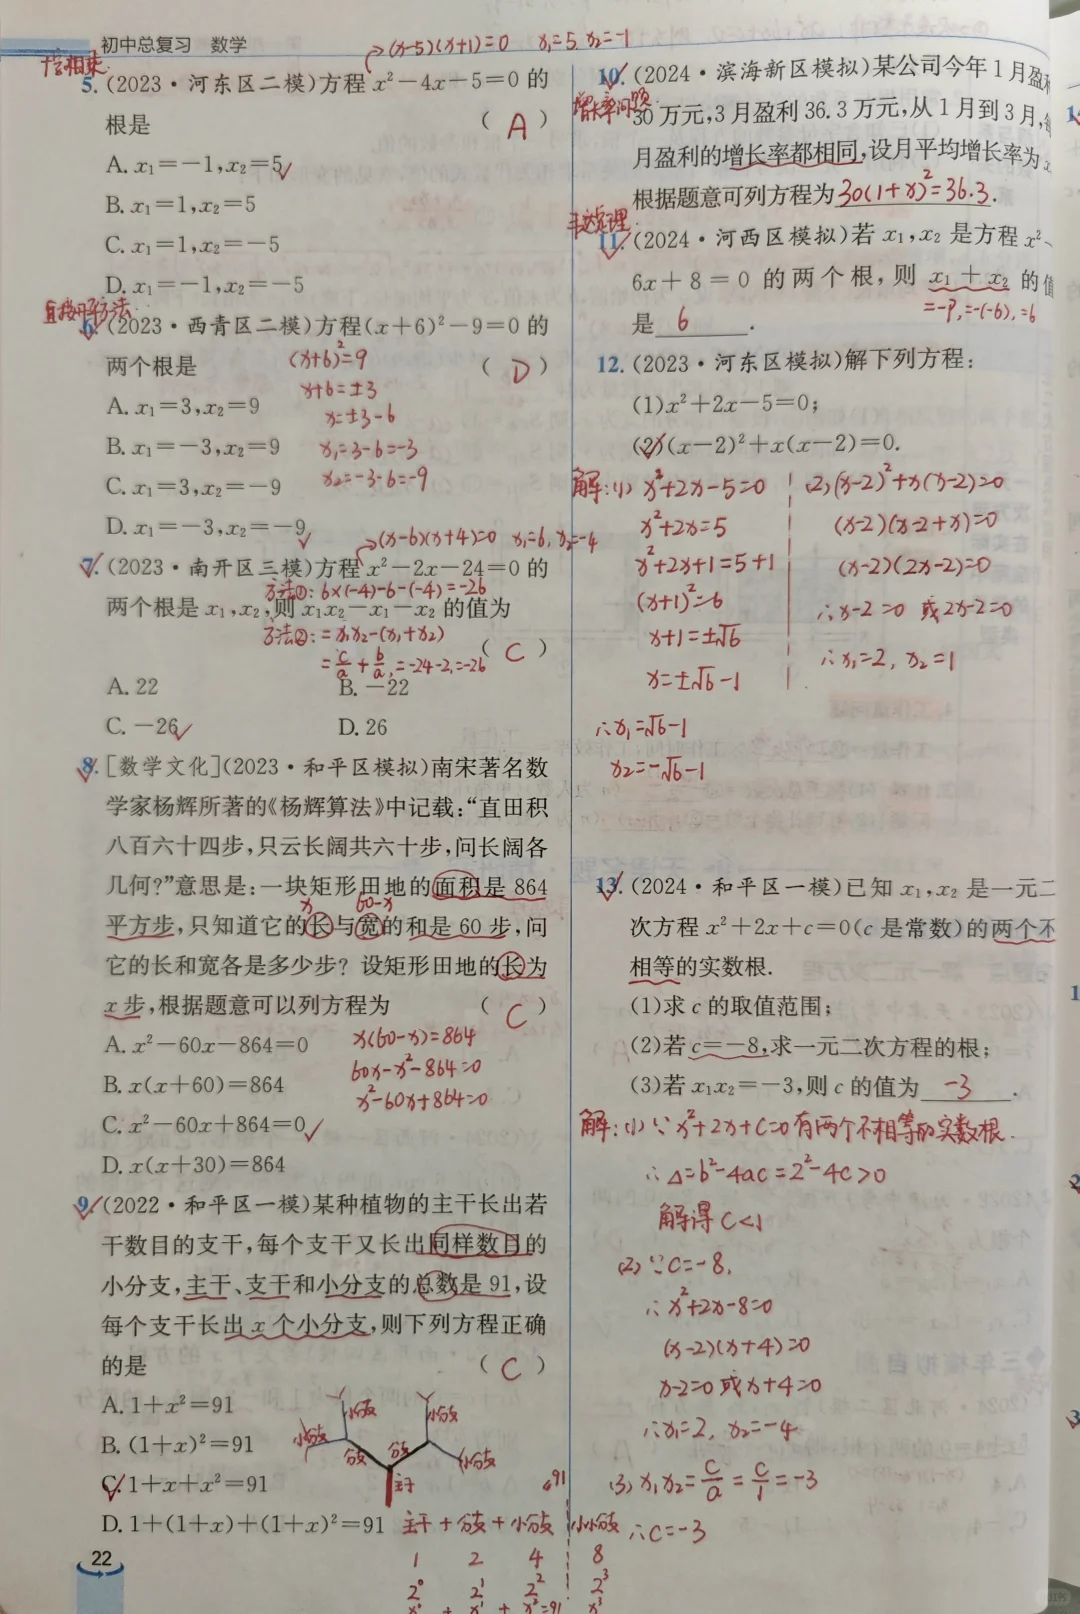 初中总复习 数学
十字相乘
→(x-5)(x+1)=0 x₁=5, x₂=-1
5. (2023·河东区二模)方程 x²-4x-5=0 的
根是 ( A )
A. x₁=-1,x₂=5✓
B. x₁=1,x₂=5
C. x₁=1,x₂=-5
D. x₁=-1,x₂=-5
直接开平方法
6. (2023·西青区二模)方程(x+6)²-9=0 的
两个根是 ( D )
(x+6)²=9
x+6=±3
x=±3-6
x₁=3-6=-3
x₂=-3-6=-9
A. x₁=3,x₂=9
B. x₁=-3,x₂=9
C. x₁=3,x₂=-9
D. x₁=-3,x₂=-9✓
→(x-6)(x+4)=0 x₁=6, x₂=-4
7. (2023·南开区三模)方程 x²-2x-24=0 的
方法①: 6×(-4)-6-(-4)=-26
两个根是 x₁,x₂,则 x₁x₂-x₁-x₂ 的值为
方法②: =x₁x₂-(x₁+x₂)
( C )
=c/a+b/a,=-24-2,=-26
A. 22 B. -22
C. -26✓ D. 26
8. [数学文化](2023·和平区模拟)南宋著名数
学家杨辉所著的《杨辉算法》中记载:“直田积
八百六十四步,只云长阔共六十步,问长阔各
几何?”意思是:一块矩形田地的面积是 864
x 60-x
平方步,只知道它的长与宽的和是 60 步,问
它的长和宽各是多少步? 设矩形田地的长为
x 步,根据题意可以列方程为 ( C )
x(60-x)=864
60x-x²-864=0
x²-60x+864=0
A. x²-60x-864=0
B. x(x+60)=864
C. x²-60x+864=0✓
D. x(x+30)=864
9. (2022·和平区一模)某种植物的主干长出若
干数目的支干,每个支干又长出同样数目的
小分支,主干、支干和小分支的总数是 91,设
每个支干长出 x 个小分支,则下列方程正确
的是 ( C )
A. 1+x²=91
B. (1+x)²=91
C. 1+x+x²=91
D. 1+(1+x)+(1+x)²=91
小分支 小分支
小分支 分支 分支 小分支
主干
91
主干+分支+小分支 小小分支
1 2 4 8
2⁰ 2¹ 2² 2³
x⁰ + x¹ + x²=91 x³
22
10. (2024·滨海新区模拟)某公司今年 1 月盈利
增长率问题
30 万元,3 月盈利 36.3 万元,从 1 月到 3 月,每
月盈利的增长率都相同,设月平均增长率为 x
根据题意可列方程为 30(1+x)²=36.3.
韦达定理
11. (2024·河西区模拟)若 x₁,x₂ 是方程 x²-
6x+8=0 的两个根,则 x₁+x₂ 的值
=-p,=-(-6),=6
是 6 .
12. (2023·河东区模拟)解下列方程:
(1)x²+2x-5=0;
(2)(x-2)²+x(x-2)=0.
解:(1) x²+2x-5=0
x²+2x=5
x²+2x+1=5+1
(x+1)²=6
x+1=±√6
x=±√6-1
∴x₁=√6-1
x₂=-√6-1
(2)(x-2)²+x(x-2)=0
(x-2)(x-2+x)=0
(x-2)(2x-2)=0
∴x-2=0 或2x-2=0
∴x₁=2, x₂=1
13. (2024·和平区一模)已知 x₁,x₂ 是一元二
次方程 x²+2x+c=0(c 是常数)的两个不
相等的实数根.
(1)求 c 的取值范围;
(2)若 c=-8,求一元二次方程的根;
(3)若 x₁x₂=-3,则 c 的值为 -3 .
解:(1)∵x²+2x+c=0有两个不相等的实数根.
∴△=b²-4ac=2²-4c>0
解得 c<1
(2)∵c=-8,
∴x²+2x-8=0
(x-2)(x+4)=0
x-2=0 或x+4=0
∴x₁=2, x₂=-4
(3) x₁x₂=c/a=c/1=-3
∴c=-3